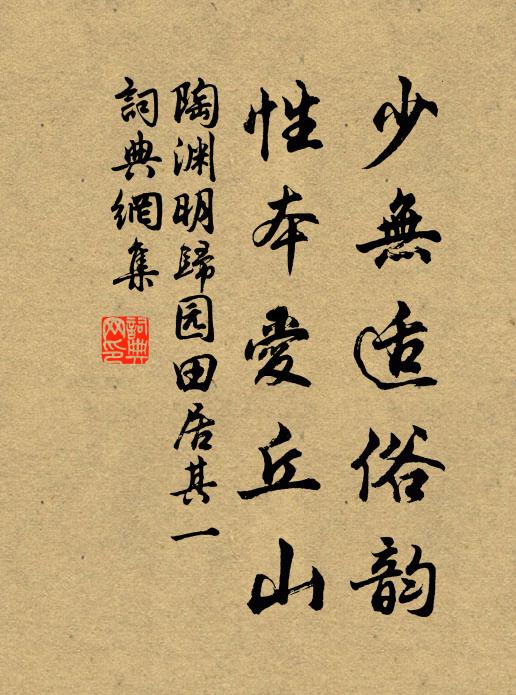 少無适俗韵
性本愛丘山
陶渊明歸园田居其一
詞典網集
詞典网印